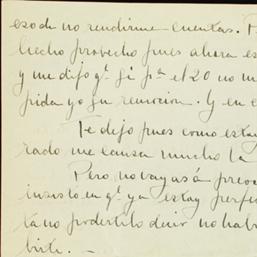 eso de no rendirme cuentas. P
hecho provecho pues ahora es
y me dijo q. si pa el 20 no m
pida yo su remocion. Y en e
Te dejo pues como estay
rado me causa mucho ta
Pero no vayas á preoc
insisto en q. ya estoy perfe
ta no podertelo decir no hab
birte. —